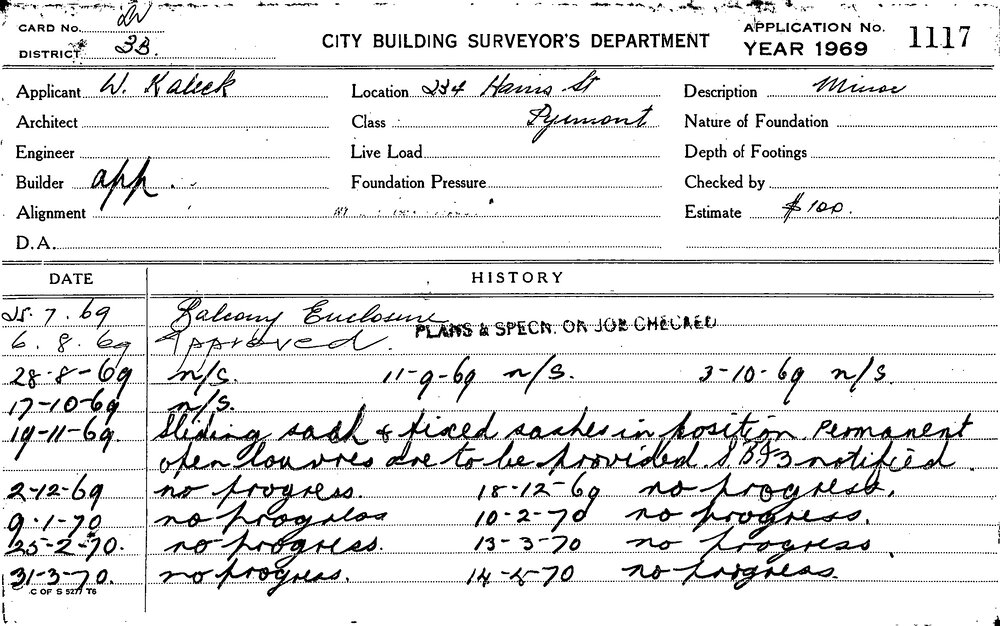 CARD No.
DISTRICT 3B.
CITY BUILDING SURVEYOR'S DEPARTMENT
APPLICATION No. 1117
YEAR 1969
Applicant W. Kaleck
Location 234 Harris St
Description Minor
Architect
Class Pyrmont
Nature of Foundation
Engineer
Live Load
Depth of Footings
Builder app.
Foundation Pressure
Checked by
Alignment
Estimate $100.
D.A.
DATE HISTORY
25.7.69 Balcony Enclosure
PLANS & SPECN. ON JOB CHECKED
6.8.69 Approved.
28-8-69 n/s. 11-9-69 n/s. 3-10-69 n/s.
17-10-69 n/s.
19-11-69. Sliding sash & fixed sashes in position. Permanent
open louvres are to be provided. notified.
2-12-69 no progress. 18-12-69 no progress.
9-1-70 no progress 10-2-70 no progress.
25-2-70. no progress. 13-3-70 no progress.
31-3-70. no progress. no progress.
C OF S 5277 T6